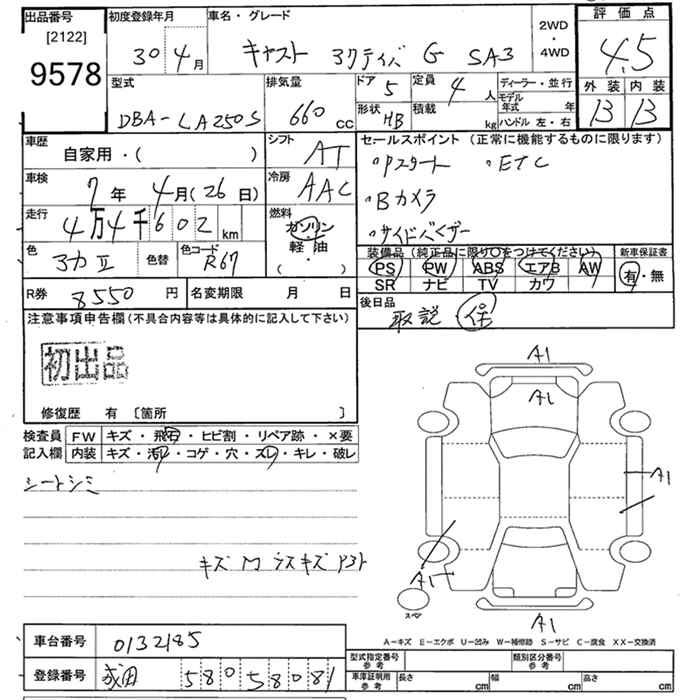 出品番号
[2122]
9578
初度登録年月
30年4月
車名・グレード
キャスト アクティバ G SA3
2WD
・
4WD
評価点
4.5
外装 内装
B B
型式
DBA-LA250S
排気量
660 cc
ドア 5
定員 4 人
形状 HB
積載 kg
ディーラー・並行
モデル年式 年
ハンドル 左・右
車歴
自家用・( )
シフト
AT
車検
7年4月(26日)
冷房
AAC
走行
4万4千602 km
燃料
ガソリン
軽油
( ・ )
色
色替
色コード
R67
R券 8550円
名変期限 月 日
セールスポイント(正常に機能するものに限ります)
°Pスタート °ETC
°Bカメラ
°サイドバイザー
装備品(純正品に限り○をつけてください)
PS PW ABS エアB AW
SR ナビ TV カワ
新車保証書
有・無
後日品
取説 保
注意事項申告欄(不具合内容等は具体的に記入して下さい)
初出品
修復歴 有 〔箇所 〕
検査員
記入欄
FW キズ・飛石・ヒビ割・リペア跡・×要
内装 キズ・汚れ・コゲ・穴・スレ・キレ・破レ
シートシミ
キズ
A1
A1
A1
A1
A1
スペア
A−キズ E−エクボ U−凹み W−補修跡 S−サビ C−腐食 XX−交換済
車台番号 0132185
登録番号 成田 580 5 8081
型式指定番号
参考
類別区分番号
参考
車庫証明用
参考
長さ cm
幅 cm
高さ cm